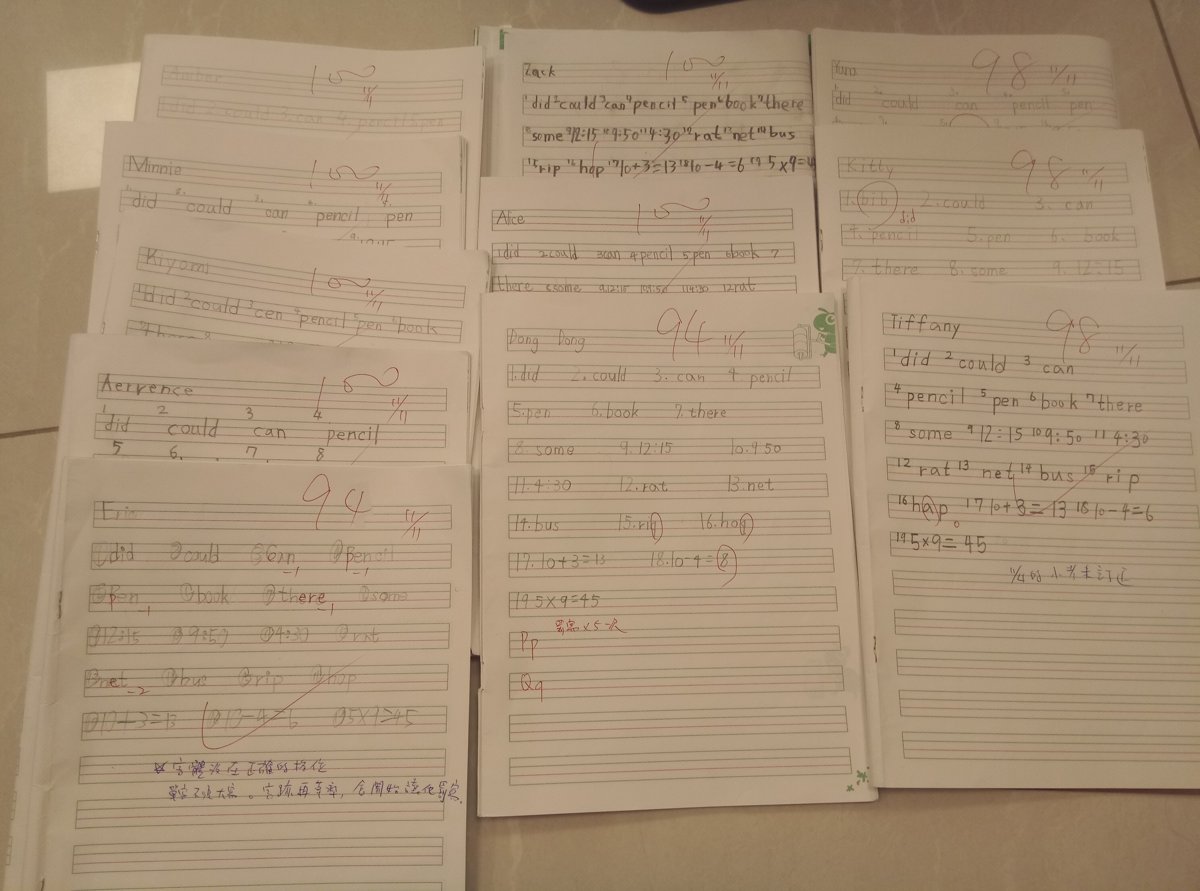 Amber 100 11/11
1.did 2.could 3.can 4.pencil 5.pen
Minnie 100 11/11
did could can pencil pen
Kiyomi 100 11/11
1did 2could 3cen 4pencil 5pen 6books
Aerrence 100 11/11
1 2 3 4
did could can pencil
5 6. 7. 8
Eric 94 11/11
①did ②could ③can ④pencil
-1 -1
⑤pen ⑥book ⑦there ⑧some
-1 -1
⑨12:15 ⑩9:50 ⑪4:30 ⑫rat
⑬net ⑭bus ⑮rip ⑯hop
-2
⑰10+3=13 ⑱10-4=6 ⑲5×9=45
Zack 100 11/11
1did 2could 3can 4pencil 5pen 6book 7there
8some 9 12:15 10 9:50 11 4:30 12rat 13net 14bus
15rip 16hop 17 10+3=13 18 10-4=6 19 5×9=4
Alice 100 11/11
1did 2could 3can 4pencil 5pen 6book 7
there 8some 9 12:15 10 9:50 11 4:30 12rat
Dong Dong 94 11/11
1.did 2.could 3.can 4.pencil
5.pen 6.book 7.there
8.some 9.12:15 10.9:50
11.4:30 12.rat 13.net
14.bus 15.riq 16.hoq
17.10+3=13 18.10-4=8
19.5×9=45
罰寫×5次
Pp
Qq
Yuna 98 11/11
did could can pencil pen
Kitty 98 11/11
1.bib 2.could 3.can
did
4.pencil 5.pen 6.book
7.there 8.some 9.12:15
Tiffany 98 11/11
1did 2could 3can
4pencil 5pen 6book 7there
8some 9 12:15 10 9:50 11 4:30
12rat 13net 14bus 15rip
16hap 17 10+3=13 18 10-4=6
19 5×9=45
11/4的小考未訂正